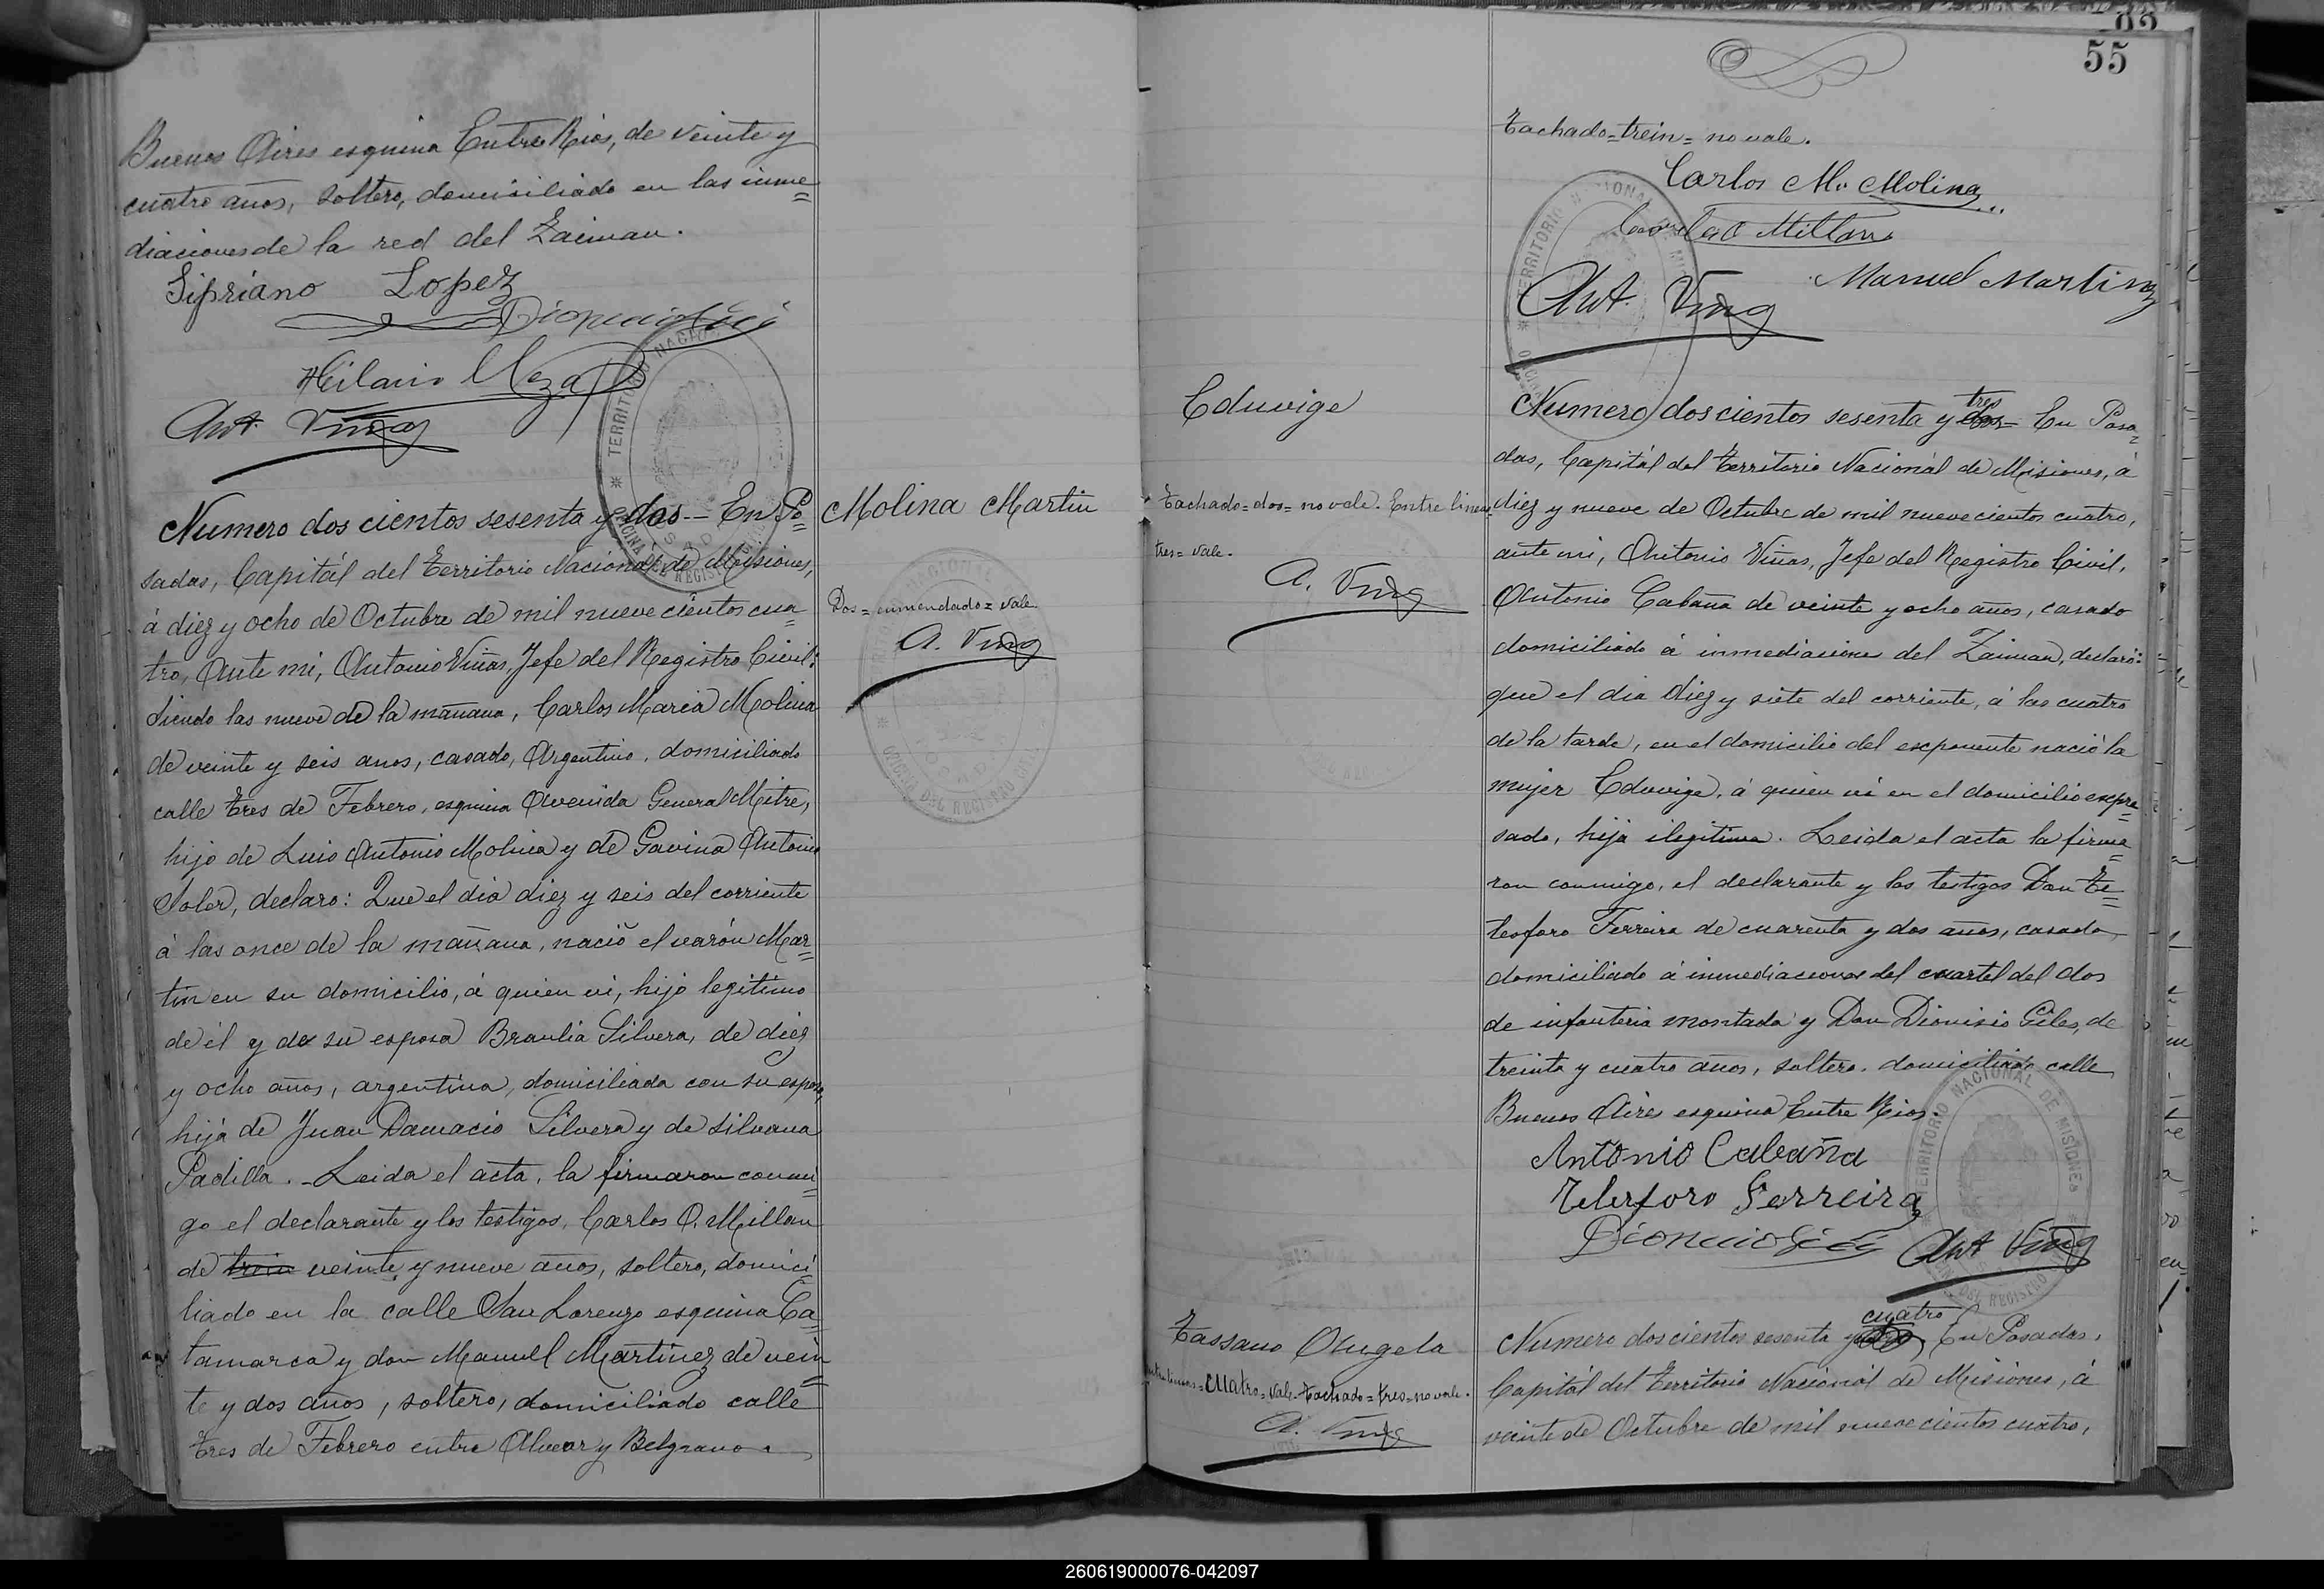 Buenos Aires esquina Entre Rios, de veinte y
cuatro años, soltero, domisiliado en las inme=
diaciones de la red del Zaiman.
Sipriano Lopez
Hilario Meza
Ant. Viñas
Numero dos cientos sesenta y dos — En Po=
sadas, Capitál del Territorio Nacional de Misiones,
á diez y ocho de Octubre de mil nueve cientos cua=
tro, Ante mi, Antonio Viñas, Jefe del Registro Civil;
siendo las nueve de la mañana, Carlos Maria Molina
de veinte y seis anos, casado, Argentino, domisiliado
calle Tres de Febrero, esquina Avenida General Mitre,
hijo de Luis Antonio Molina y de Gavina Antonia
Soler, declaro: Que el dia diez y seis del corriente
á las once de la mañana, nació el varón Mar=
tin en su domicilio, á quien vi, hijo legitimo
de él y de su esposa Braulia Silvera, de diez
y ocho años, argentina, domiciliada con su esposo,
hija de Juan Damacio Silvera y de Silvana
Padilla. Leida el acta, la firmaron conmi=
go el declarante y los testigos, Carlos O. Millan
de trein veinte y nueve años, soltero, domici=
liado en la calle San Lorenzo esquina Ca=
tamarca y don Manuel Martinez de vein=
te y dos años, soltero, domiciliado calle
Tres de Febrero entre Alvear y Belgrano.
Molina Martin
Dos = enmendado = vale
A. Viñas
55
Tachado = trein = no vale.
Carlos M. Molina
Carlos O Millan
Manuel Martinez
Ant. Viñas
Eduvige
Tachado = dos = no vale. Entre lineas
tres = vale.
A. Viñas
Numero dos cientos sesenta y dos tres = En Posa=
das, Capitál del Territorio Nacionál de Misiones, á
diez y nueve de Octubre de mil nueve cientos cuatro,
ante mi, Antonio Viñas, Jefe del Registro Civil,
Antonio Cabaña de veinte y ocho años, casado
domiciliado á inmediaciones del Zaiman, declaró:
que el dia diez y siete del corriente, á las cuatro
de la tarde, en el domicilio del esponente nació la
mujer Eduvige, á quien vi en el domicilio espre=
sado, hija ilegitima. Leida el acta la firma=
ron conmigo, el declarante y los testigos Don Te=
lesforo Ferreira de cuarenta y dos años, casado
domiciliado á inmediaciones del cuartel del dos
de infanteria montada y Don Dionisio Giles, de
treinta y cuatro años, soltero, domiciliado calle
Buenos Aires esquina Entre Rios.
Antonio Cabaña
Telesforo Ferreira
Ant Viñas
Tassano Angela
Entre lineas = cuatro = vale. Tachado = tres = no vale.
A. Viñas
Numero dos cientos sesenta y cuatro, En Posadas,
Capitál del Territorio Nacional de Misiones, á
veinte de Octubre de mil nueve cientos cuatro,
260619000076-042097